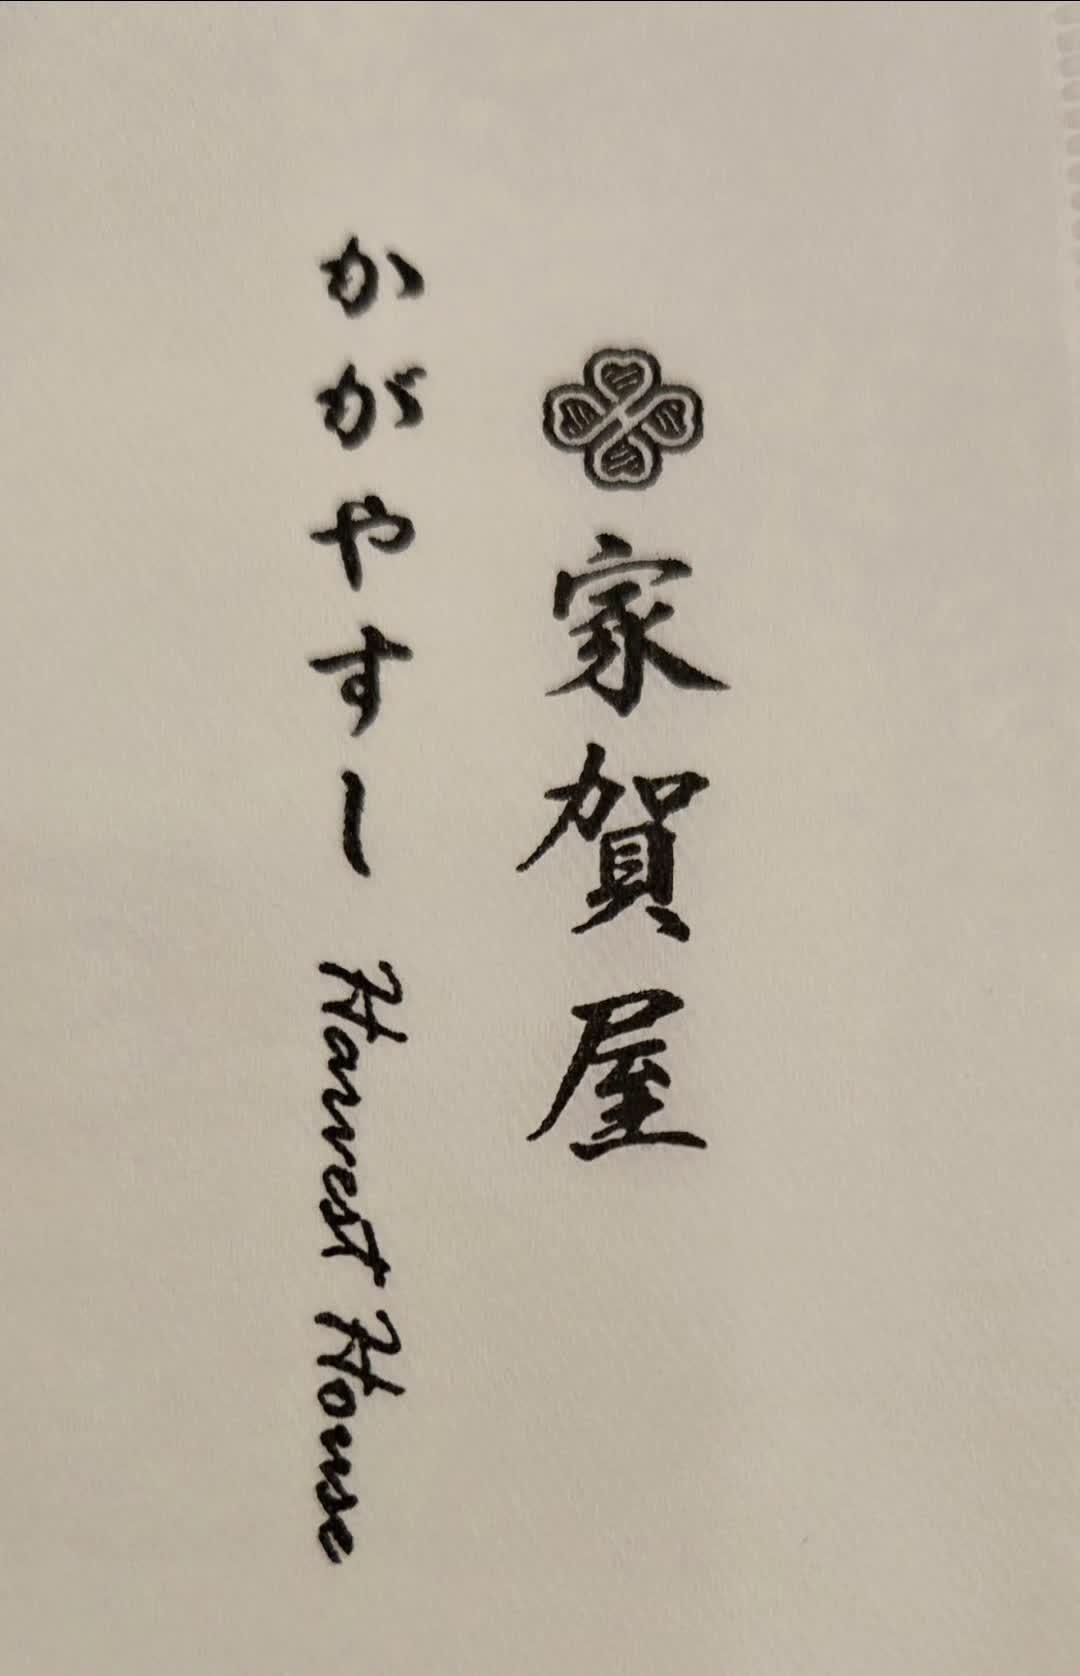 家賀屋
かがやすー Harvest House